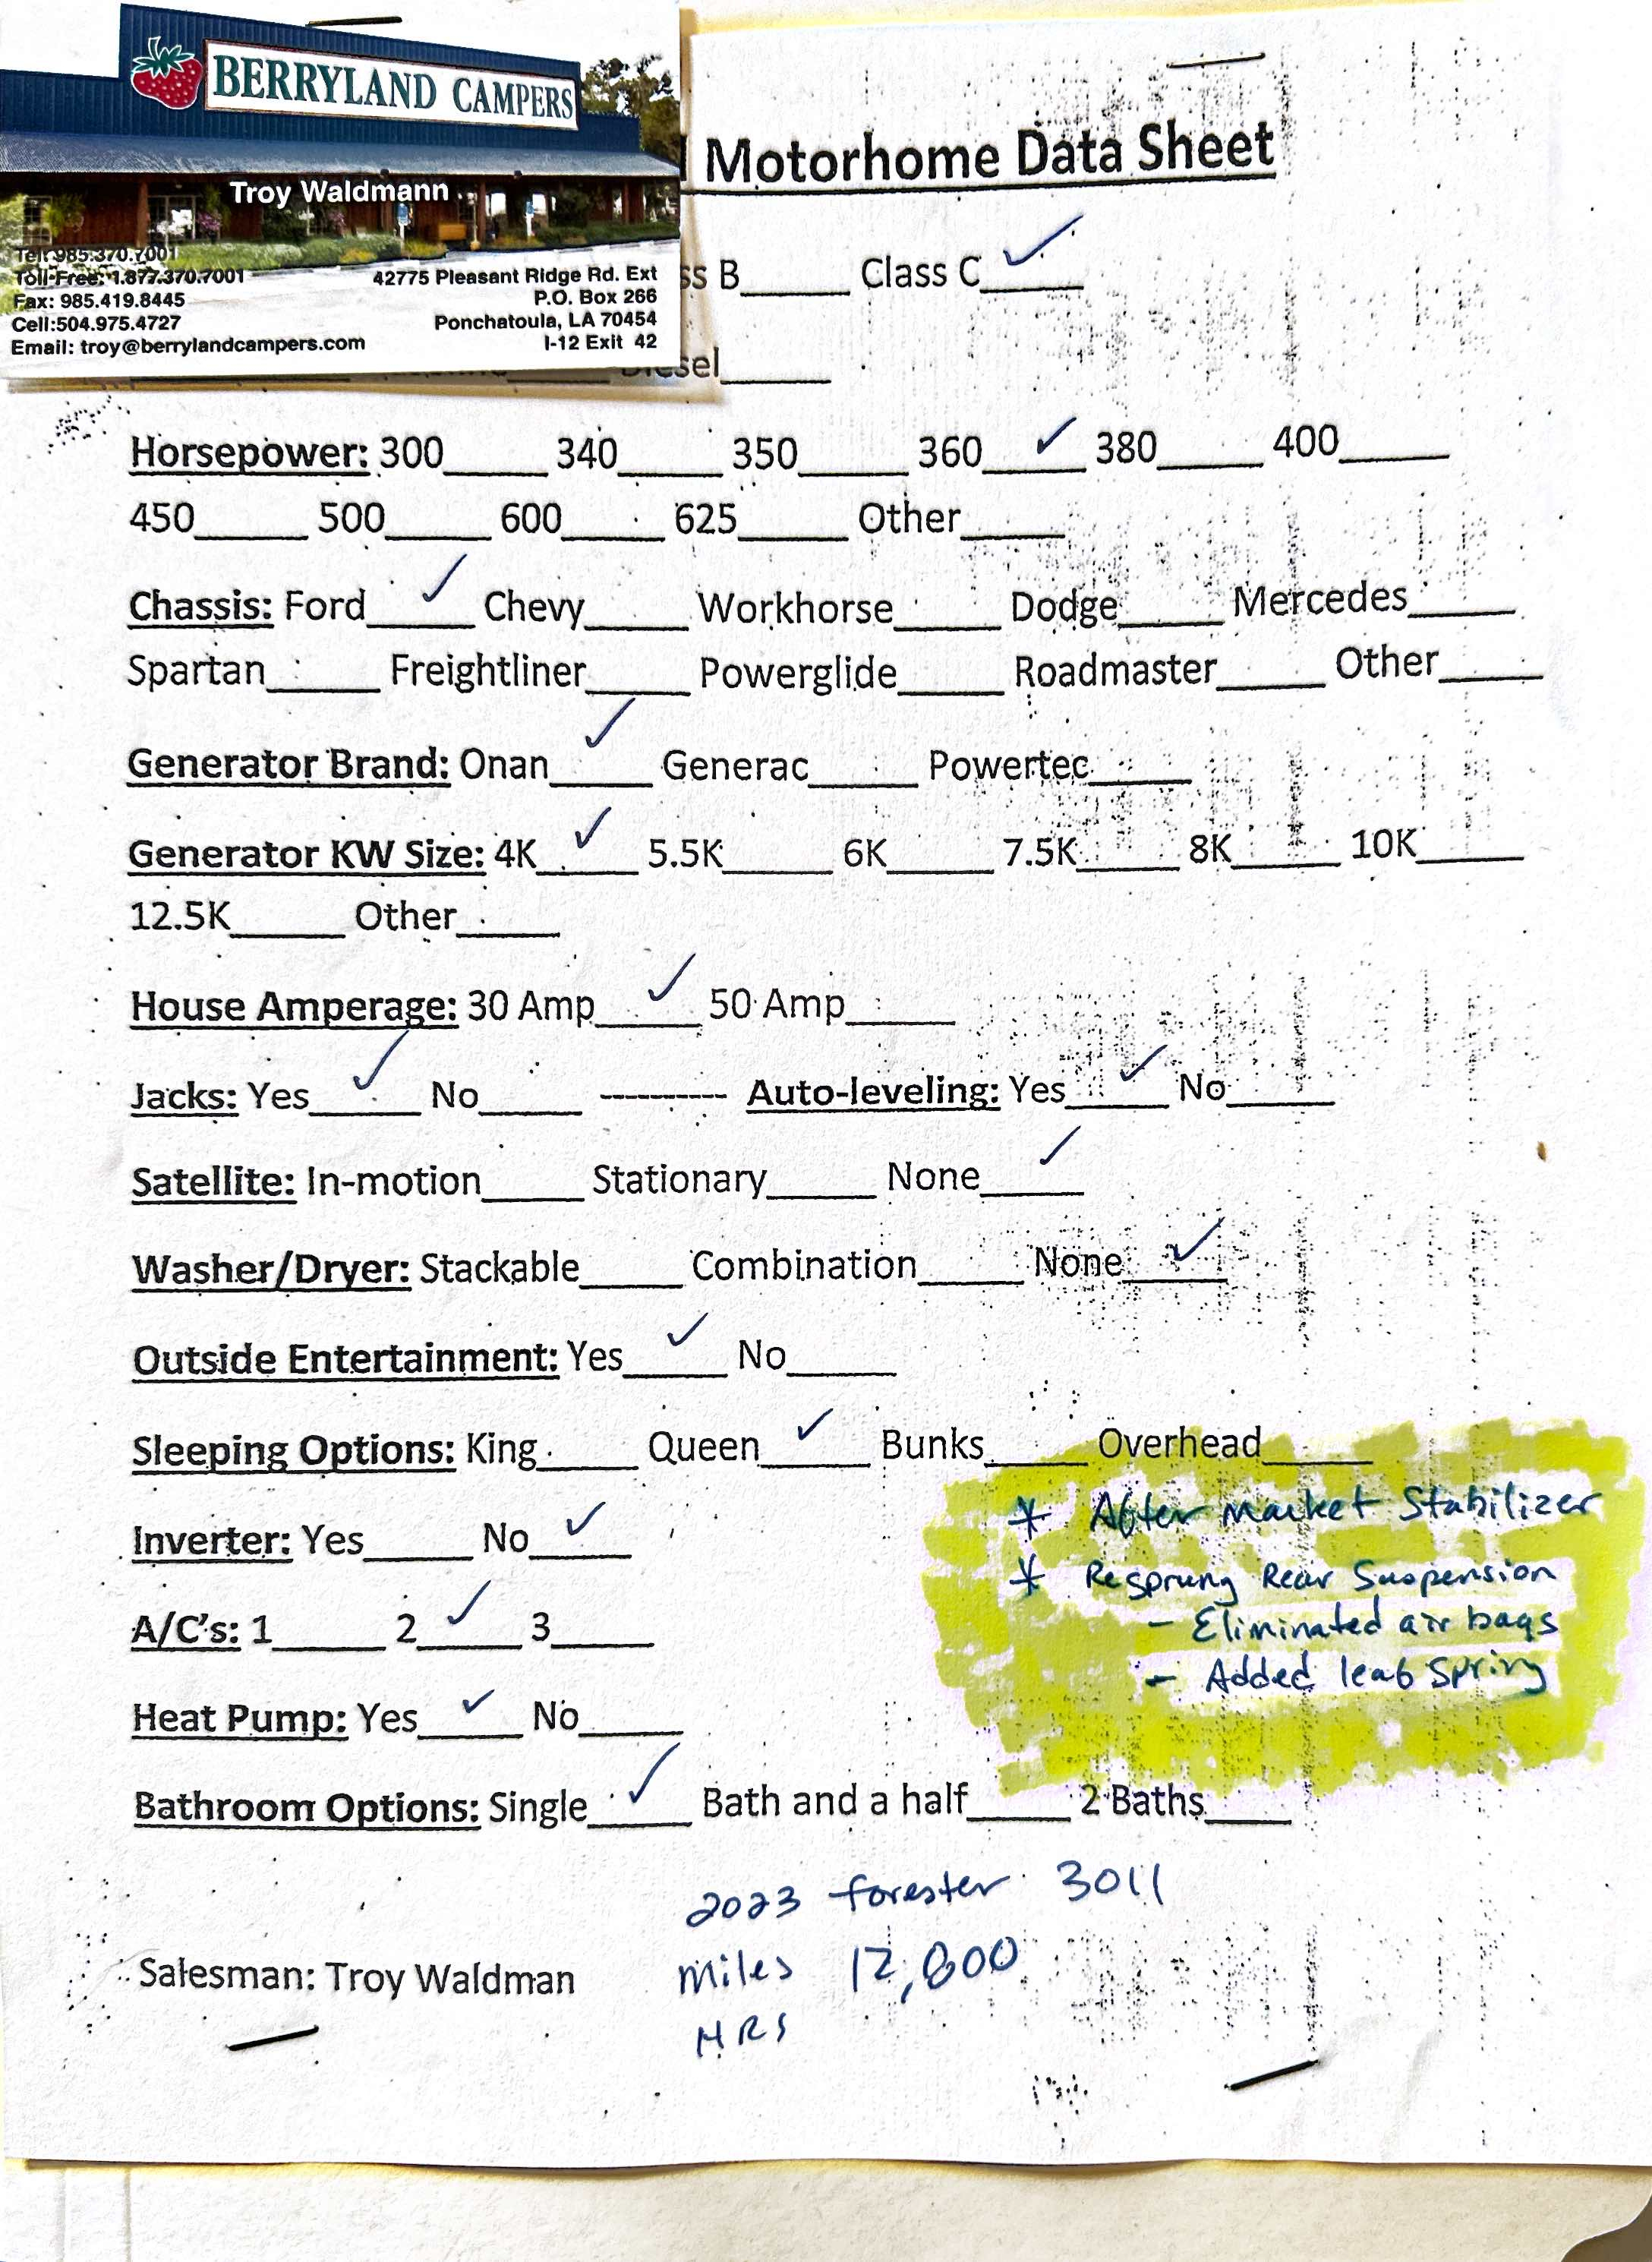 BERRYLAND CAMPERS
Troy Waldmann
Tel: 985.370.7001
Toll-Free: 1.877.370.7001
Fax: 985.419.8445
Cell:504.975.4727
Email: troy@berrylandcampers.com
42775 Pleasant Ridge Rd. Ext
P.O. Box 266
Ponchatoula, LA 70454
I-12 Exit 42
Motorhome Data Sheet
ss B_____ Class C__✓__
sel_____
Horsepower: 300_____ 340_____ 350_____ 360__✓__ 380_____ 400_____
450_____ 500_____ 600_____ 625_____ Other_____
Chassis: Ford__✓__ Chevy_____ Workhorse_____ Dodge_____ Mercedes_____
Spartan_____ Freightliner_____ Powerglide_____ Roadmaster_____ Other_____
Generator Brand: Onan__✓__ Generac_____ Powertec_____
Generator KW Size: 4K__✓__ 5.5K_____ 6K_____ 7.5K_____ 8K_____ 10K_____
12.5K_____ Other_____
House Amperage: 30 Amp__✓__ 50 Amp_____
Jacks: Yes__✓__ No_____ ---------- Auto-leveling: Yes__✓__ No_____
Satellite: In-motion_____ Stationary_____ None__✓__
Washer/Dryer: Stackable_____ Combination_____ None__✓__
Outside Entertainment: Yes__✓__ No_____
Sleeping Options: King_____ Queen__✓__ Bunks_____ Overhead_____
* After Market Stabilizer
Inverter: Yes_____ No__✓__
* Resprung Rear Suspension
- Eliminated air bags
A/C's: 1_____ 2__✓__ 3_____
- Added leaf Spring
Heat Pump: Yes__✓__ No_____
Bathroom Options: Single__✓__ Bath and a half_____ 2 Baths_____
2023 forester 3011
Salesman: Troy Waldman
miles 12,800
HRS